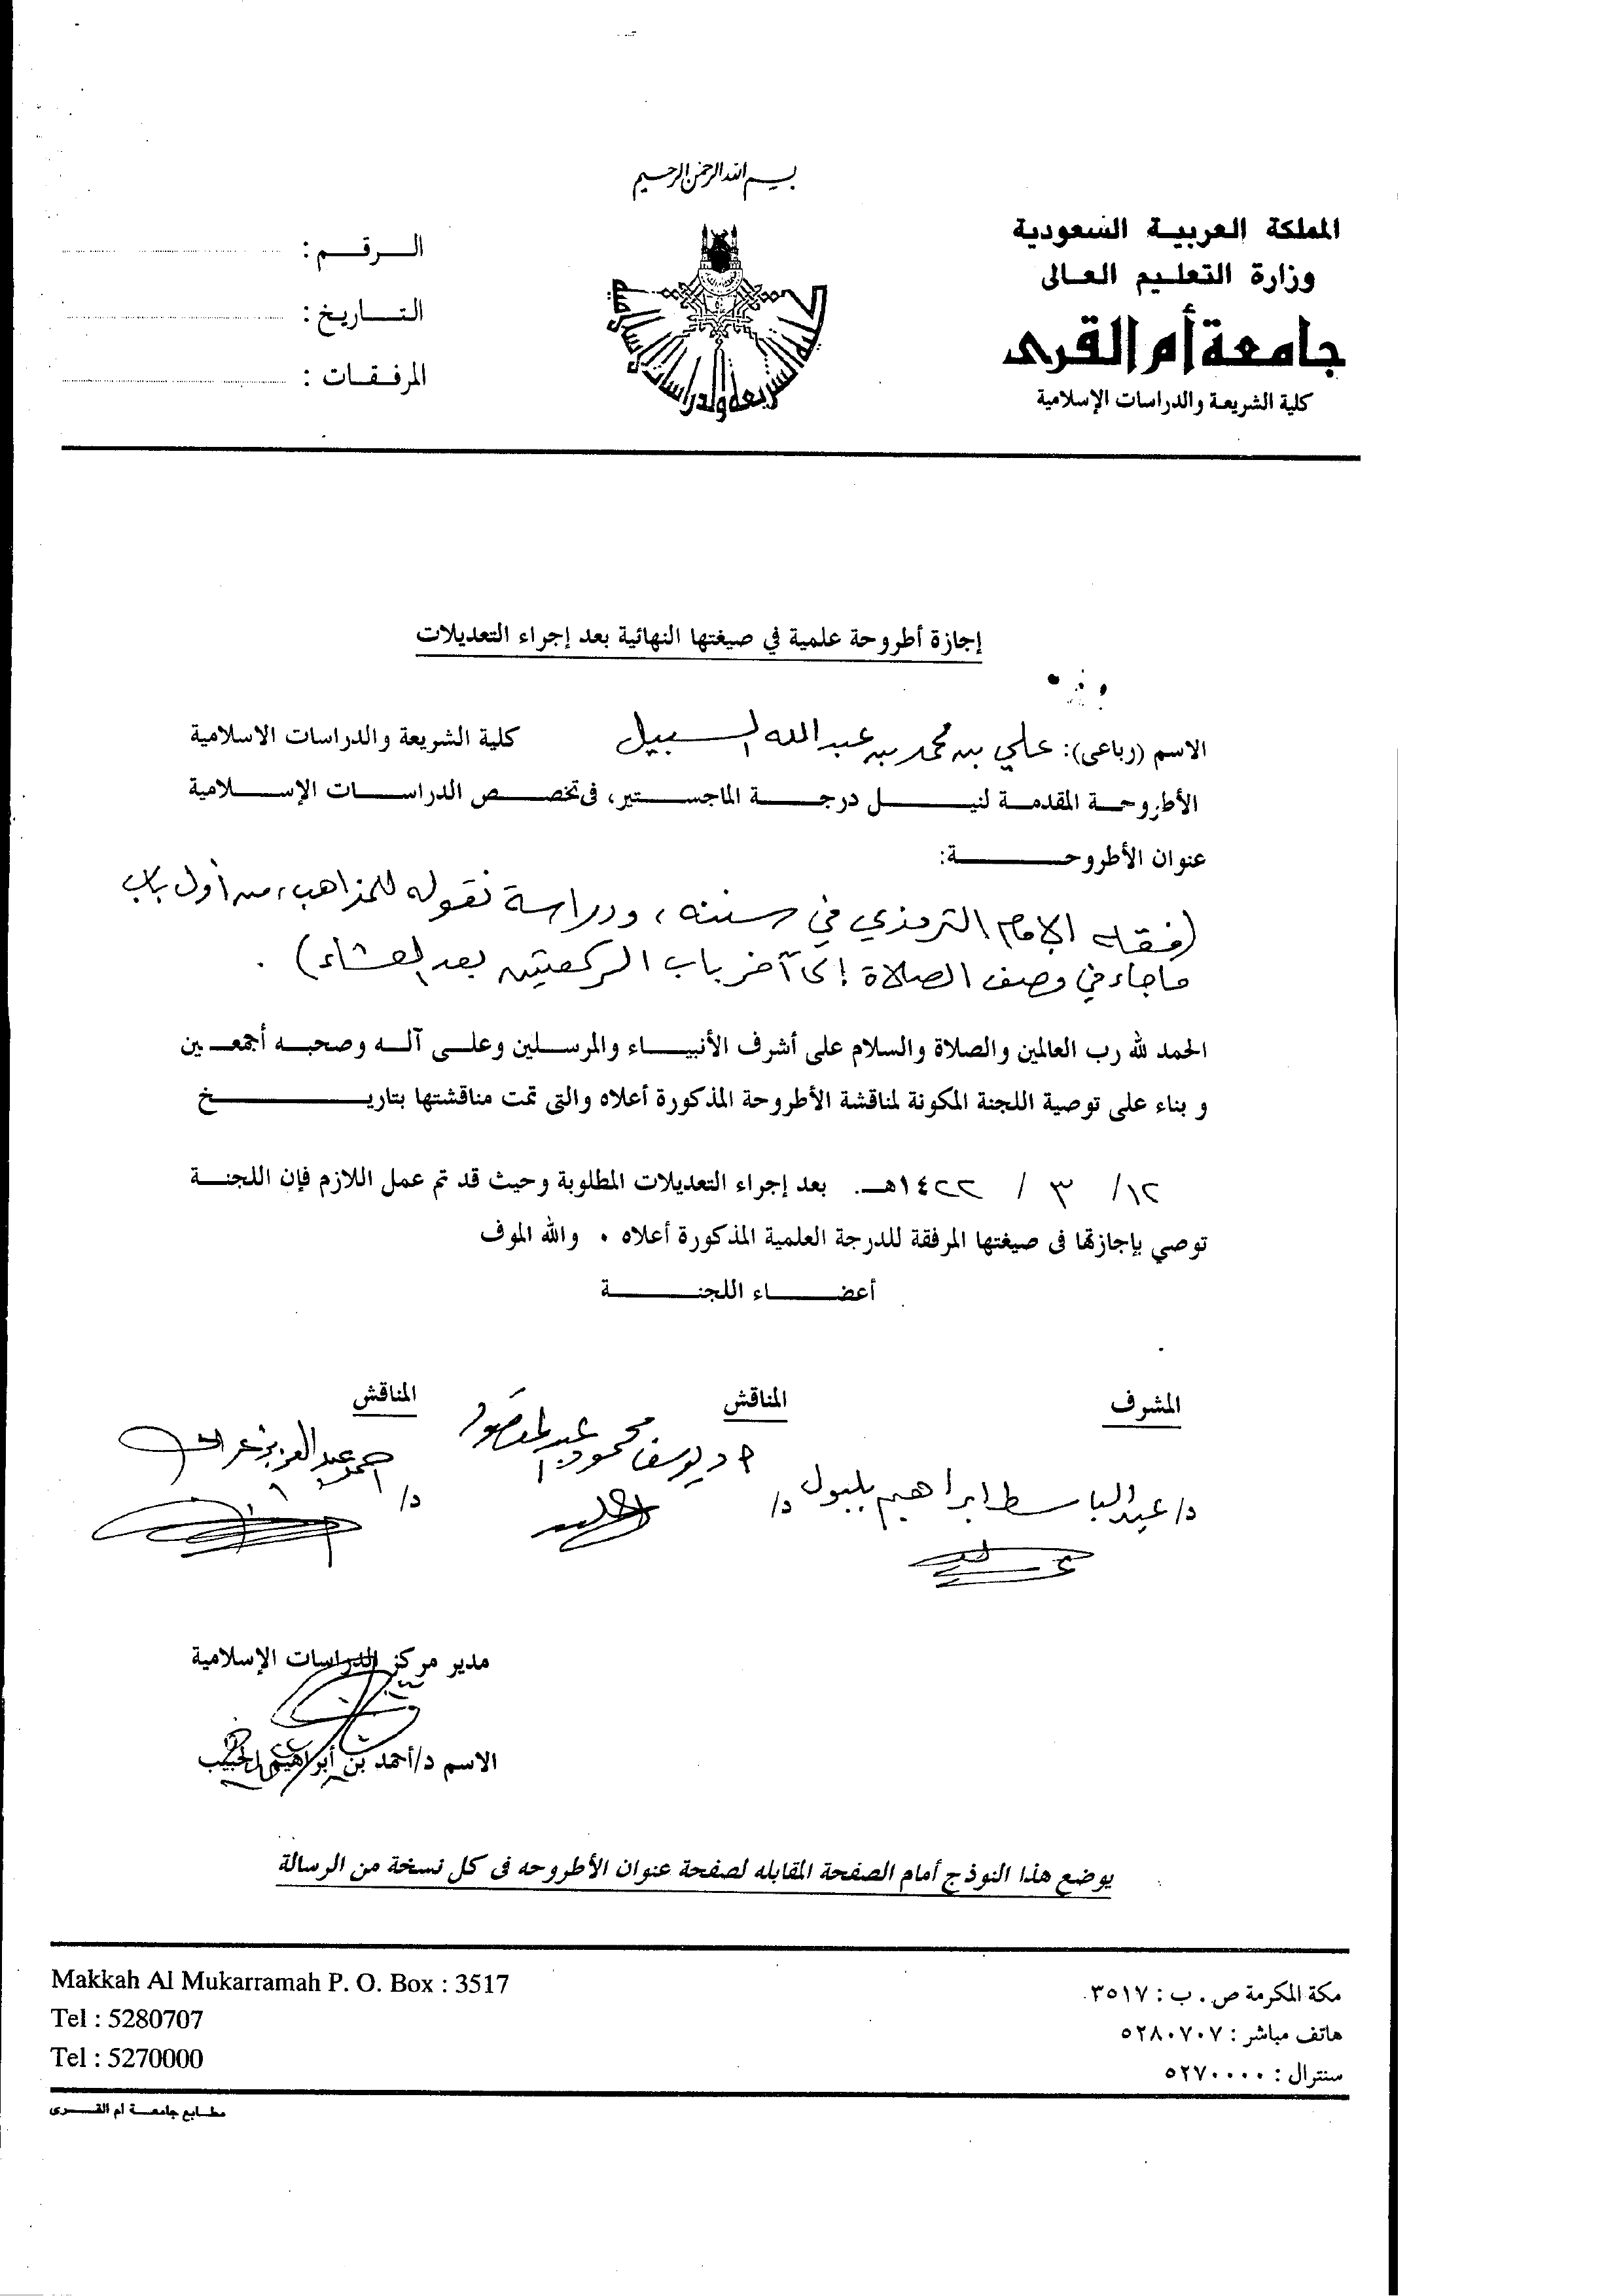 بسم الله الرحمن الرحيم
المملكة العربية السعودية
وزارة التعليم العالى
جامعة أم القرى
كلية الشريعة والدراسات الإسلامية
الرقم :
التاريخ :
المرفقات :
إجازة أطروحة علمية في صيغتها النهائية بعد إجراء التعديلات
الاسم (رباعى): علي بن محمد بن عبدالله السبيل كلية الشريعة والدراسات الاسلامية
الأطروحة المقدمة لنيل درجة الماجستير، فى تخصص الدراسات الإسلامية
عنوان الأطروحة:
(فقه الإمام الترمذي في سننه، ودراسة نقوله للمذاهب، من أول باب
ماجاء في وصف الصلاة إلى آخر باب الركعتين بعد العشاء).
الحمد لله رب العالمين والصلاة والسلام على أشرف الأنبياء والمرسلين وعلى آله وصحبه أجمعين
و بناء على توصية اللجنة المكونة لمناقشة الأطروحة المذكورة أعلاه والتى تمت مناقشتها بتاريخ
١٢/ ٣ / ١٤٢٢هـ. بعد إجراء التعديلات المطلوبة وحيث قد تم عمل اللازم فإن اللجنة
توصي بإجازتها فى صيغتها المرفقة للدرجة العلمية المذكورة أعلاه . والله الموف
أعضاء اللجنة
المشرف المناقش المناقش
د/ عبدالباسط ابراهيم بلبول
د/ يوسف محمود عبدالمقصود
د/ احمد عبدالعزيز
مدير مركز الدراسات الإسلامية
الاسم د/أحمد بن أبراهيم الحبيب
يوضع هذا النوذج أمام الصفحة المقابله لصفحة عنوان الأطروحه فى كل نسخة من الرسالة
مكة المكرمة ص . ب : ٣٥١٧
هاتف مباشر : ٥٢٨٠٧٠٧
سنترال : ٥٢٧٠٠٠٠
Makkah Al Mukarramah P. O. Box : 3517
Tel : 5280707
Tel : 5270000
مطابع جامعة ام القرى